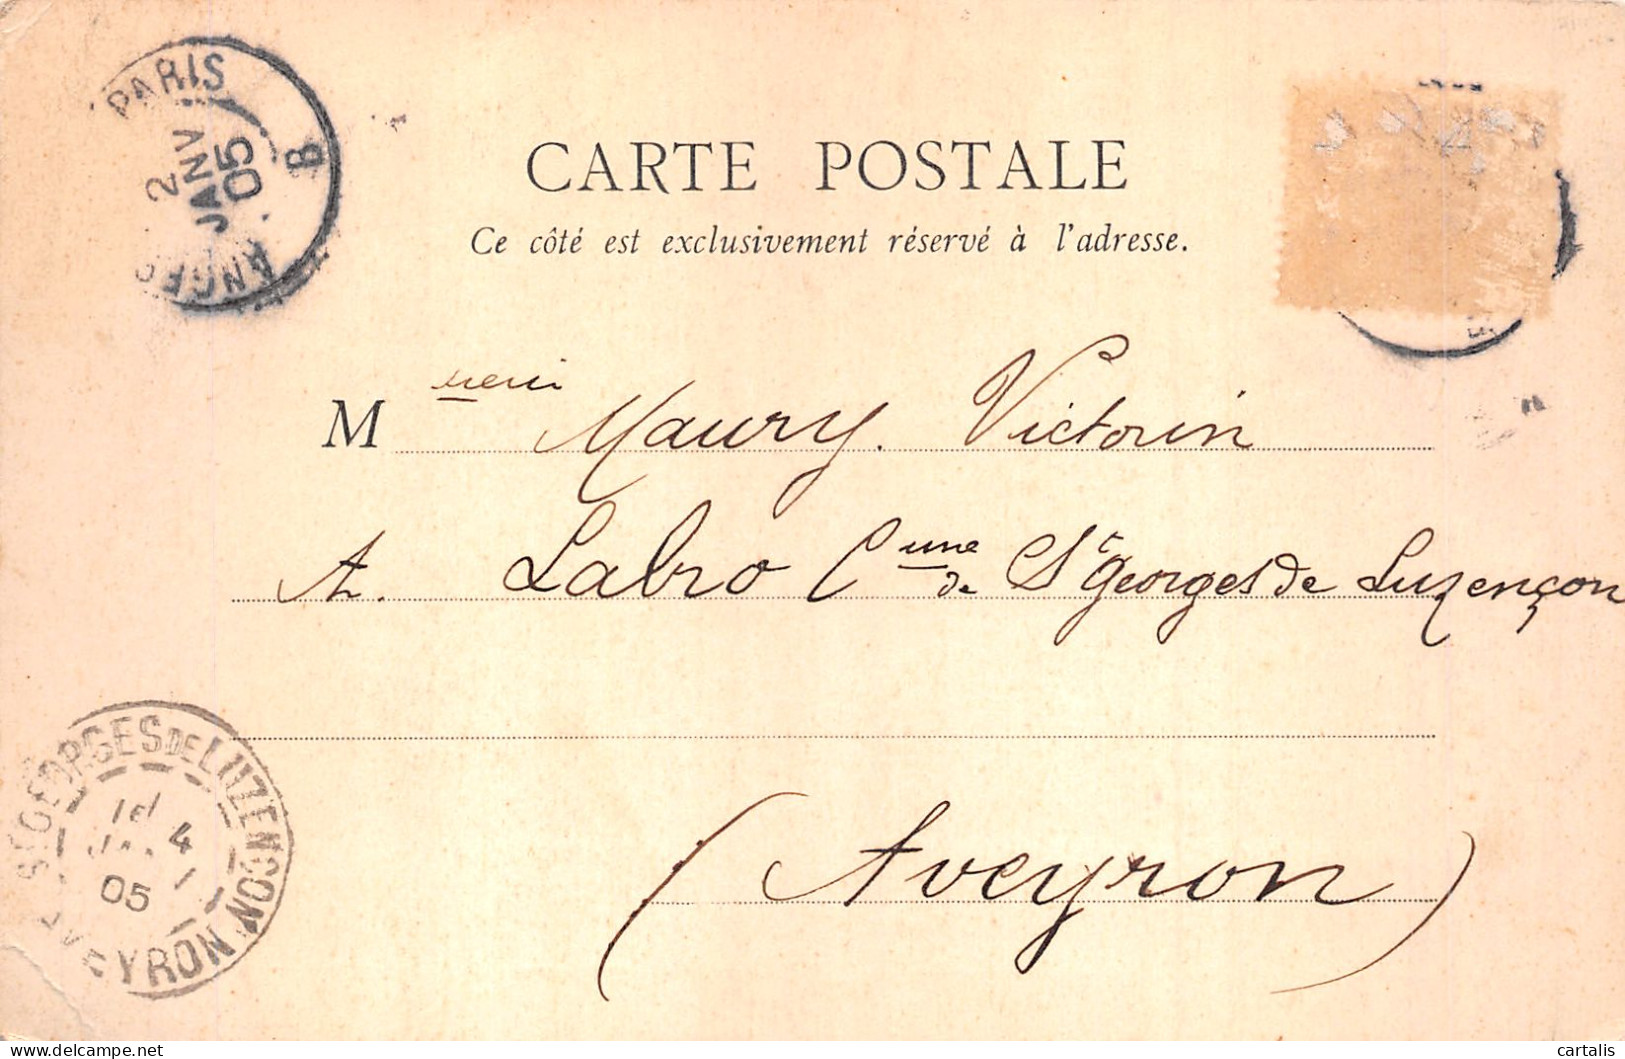 PARIS
2
JANV
05
B
CARTE POSTALE
Ce côté est exclusivement réservé à l'adresse.
M Maury. Victorin
A. Labro Cune de St Georges de Luzençon
(Aveyron)
ST GEORGES DE LUZENCON
4
05
AVEYRON
cartalis
delcampe.net